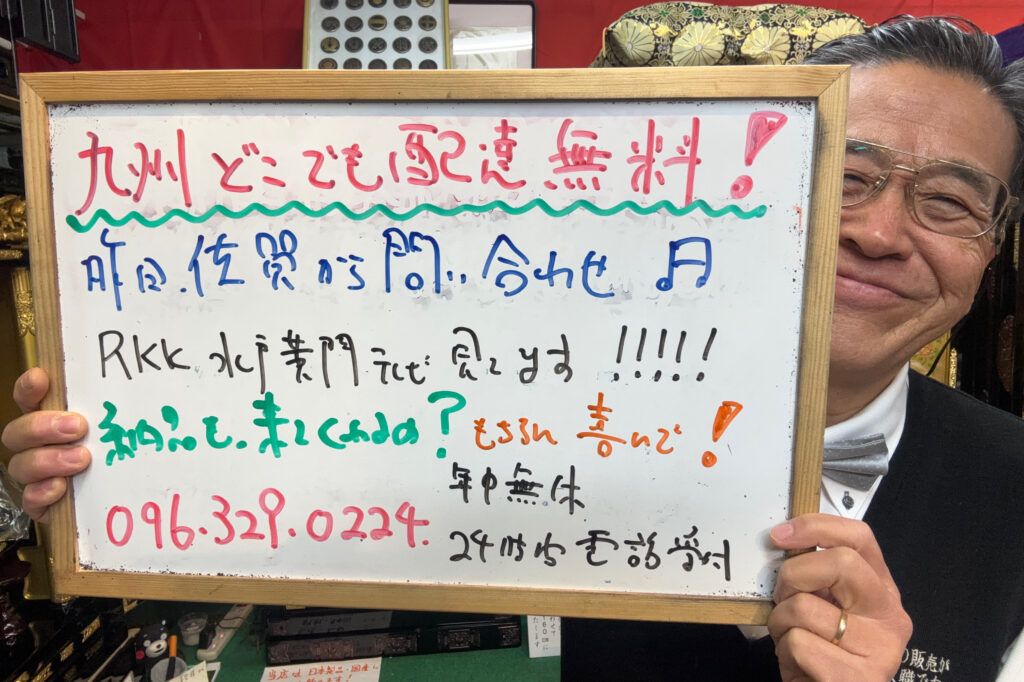 九州どこでも配達無料!
昨日.佐賀から問い合わせ ♫
RKK 水戸黄門 テレビ 見てます !!!!!
納品も.来てくれるの? もちろん 喜んで!
年中無休
096.329.0224.
24時間電話受付
当店は 日本製品・国産に
の販売が